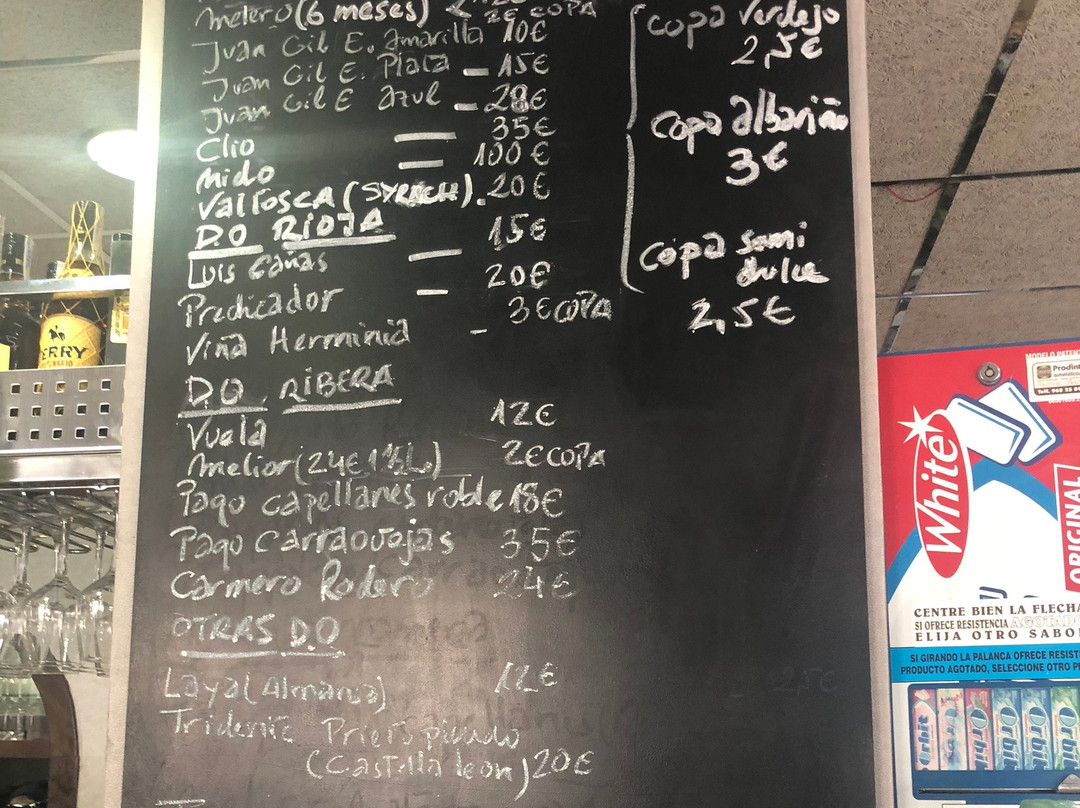 melero (6 meses)
2€ COPA
Juan Gil E. Amarilla 10€
Juan Gil E. Plata — 15€
Juan Gil E Azul — 28€
Clio — 35€
Nido — 100€
Valtosca (SYRACH). 20€
D.O RIOJA
Luis Cañas — 15€
Predicador — 20€
Viña Herminia - 3€ COPA
D.O RIBERA
Vuela 12€
melior (24€ 1'5L) 2€ COPA
Pago Capellanes roble 18€
Pago Carraovejas 35€
Carmero Rodero 24€
OTRAS D.O
Laya (Almansa) 12€
Tridente Prieto picudo
(Castilla leon) 20€
copa Verdejo
2,5€
copa albariño
3€
copa semi
dulce
2,5€
2,5€
ERRY
MODELO PATEN
Prodin
White
ORIGINAL
CENTRE BIEN LA FLECHA
SI OFRECE RESISTENCIA AGOTADO
ELIJA OTRO SABO
SI GIRANDO LA PALANCA OFRECE RESIST
PRODUCTO AGOTADO, SELECCIONE OTRO P
Orbit
Orbit
Orbit
Orbit
Orbit